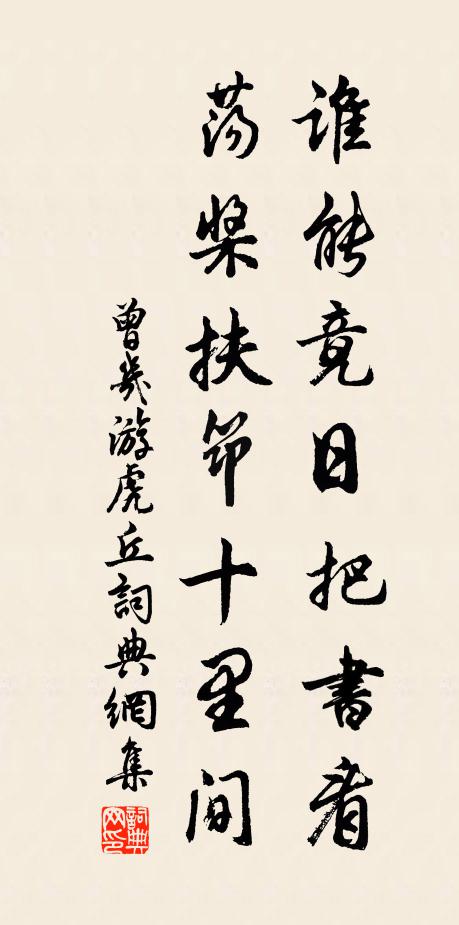 誰能竟日把書看
蕩槳扶筇十里間
曾幾游虎丘詞典網集
詞典網印